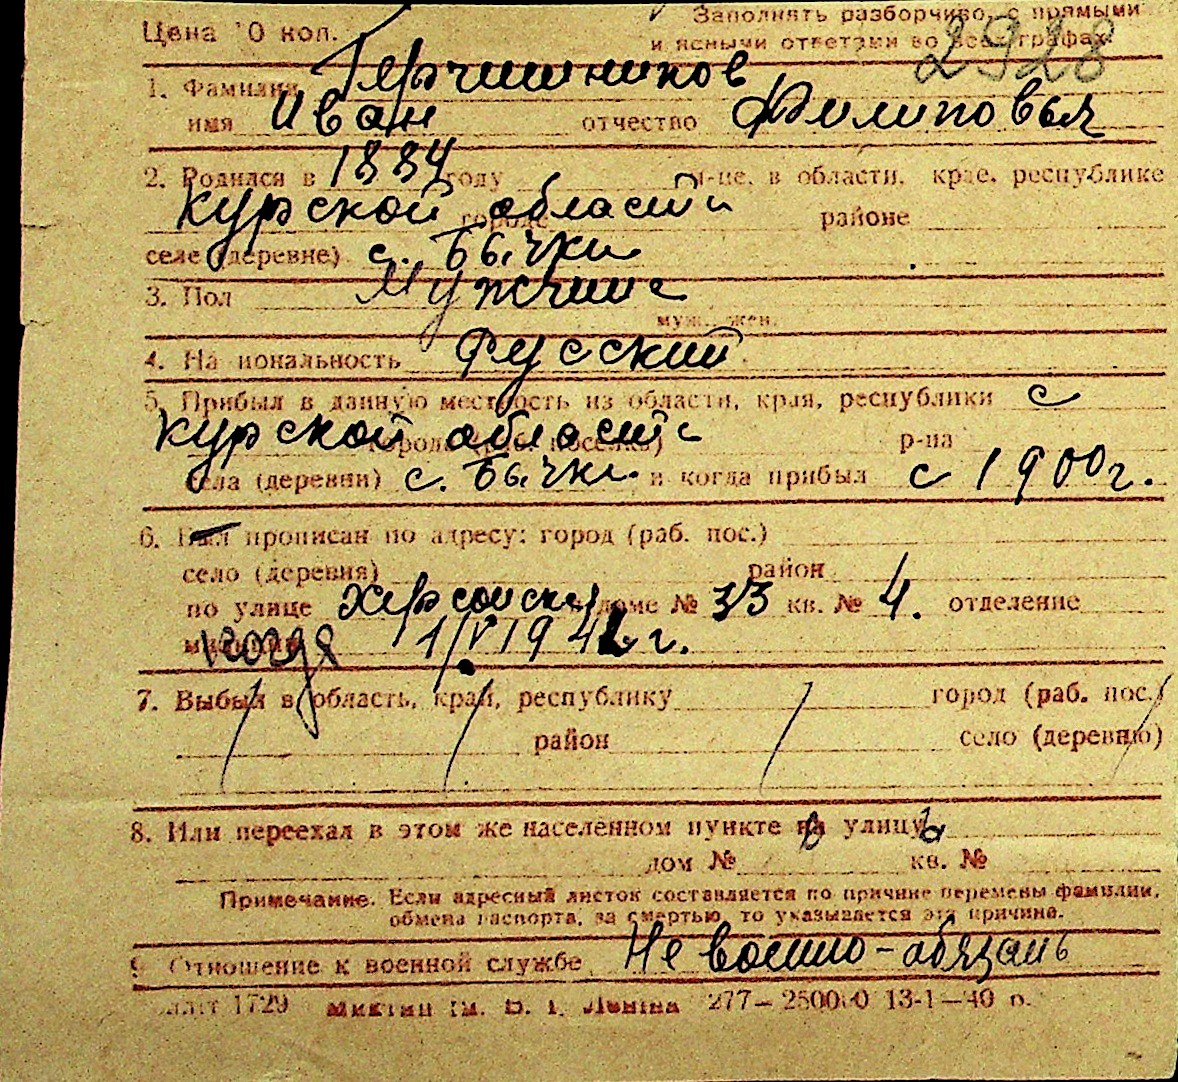 Цена 10 коп.
Заполнять разборчиво, с прямыми
и ясными ответами во всех графах.
2928
1. Фамилия Герчишников
имя Иван отчество Филиповыч
2. Родился в 1884 году м-це, в области, крае, республике
Курской области городе районе
селе (деревне) с. Бычки
3. Пол Мужчине
муж., жен.
4. Национальность Русский
5. Прибыл в данную местность из области, края, республики с
Курской области города (раб. поселка) р-на
села (деревни) с. Бычки и когда прибыл с 1900г.
6. Был прописан по адресу: город (раб. пос.)
село (деревня) район
по улице Херсонская доме № 33 кв. № 4. отделение
милиции когда 1/V 1942 г.
7. Выбыл в область, край, республику город (раб. пос.)
район село (деревню)
8. Или переехал в этом же населенном пункте на улицу
дом № кв. №
Примечание. Если адресный листок составляется по причине перемены фамилии,
обмена паспорта, за смертью, то указывается эта причина.
9. Отношение к военной службе Не военно-обязань
1729 им. В. И. Ленина 277—250000 13-1—40 р.